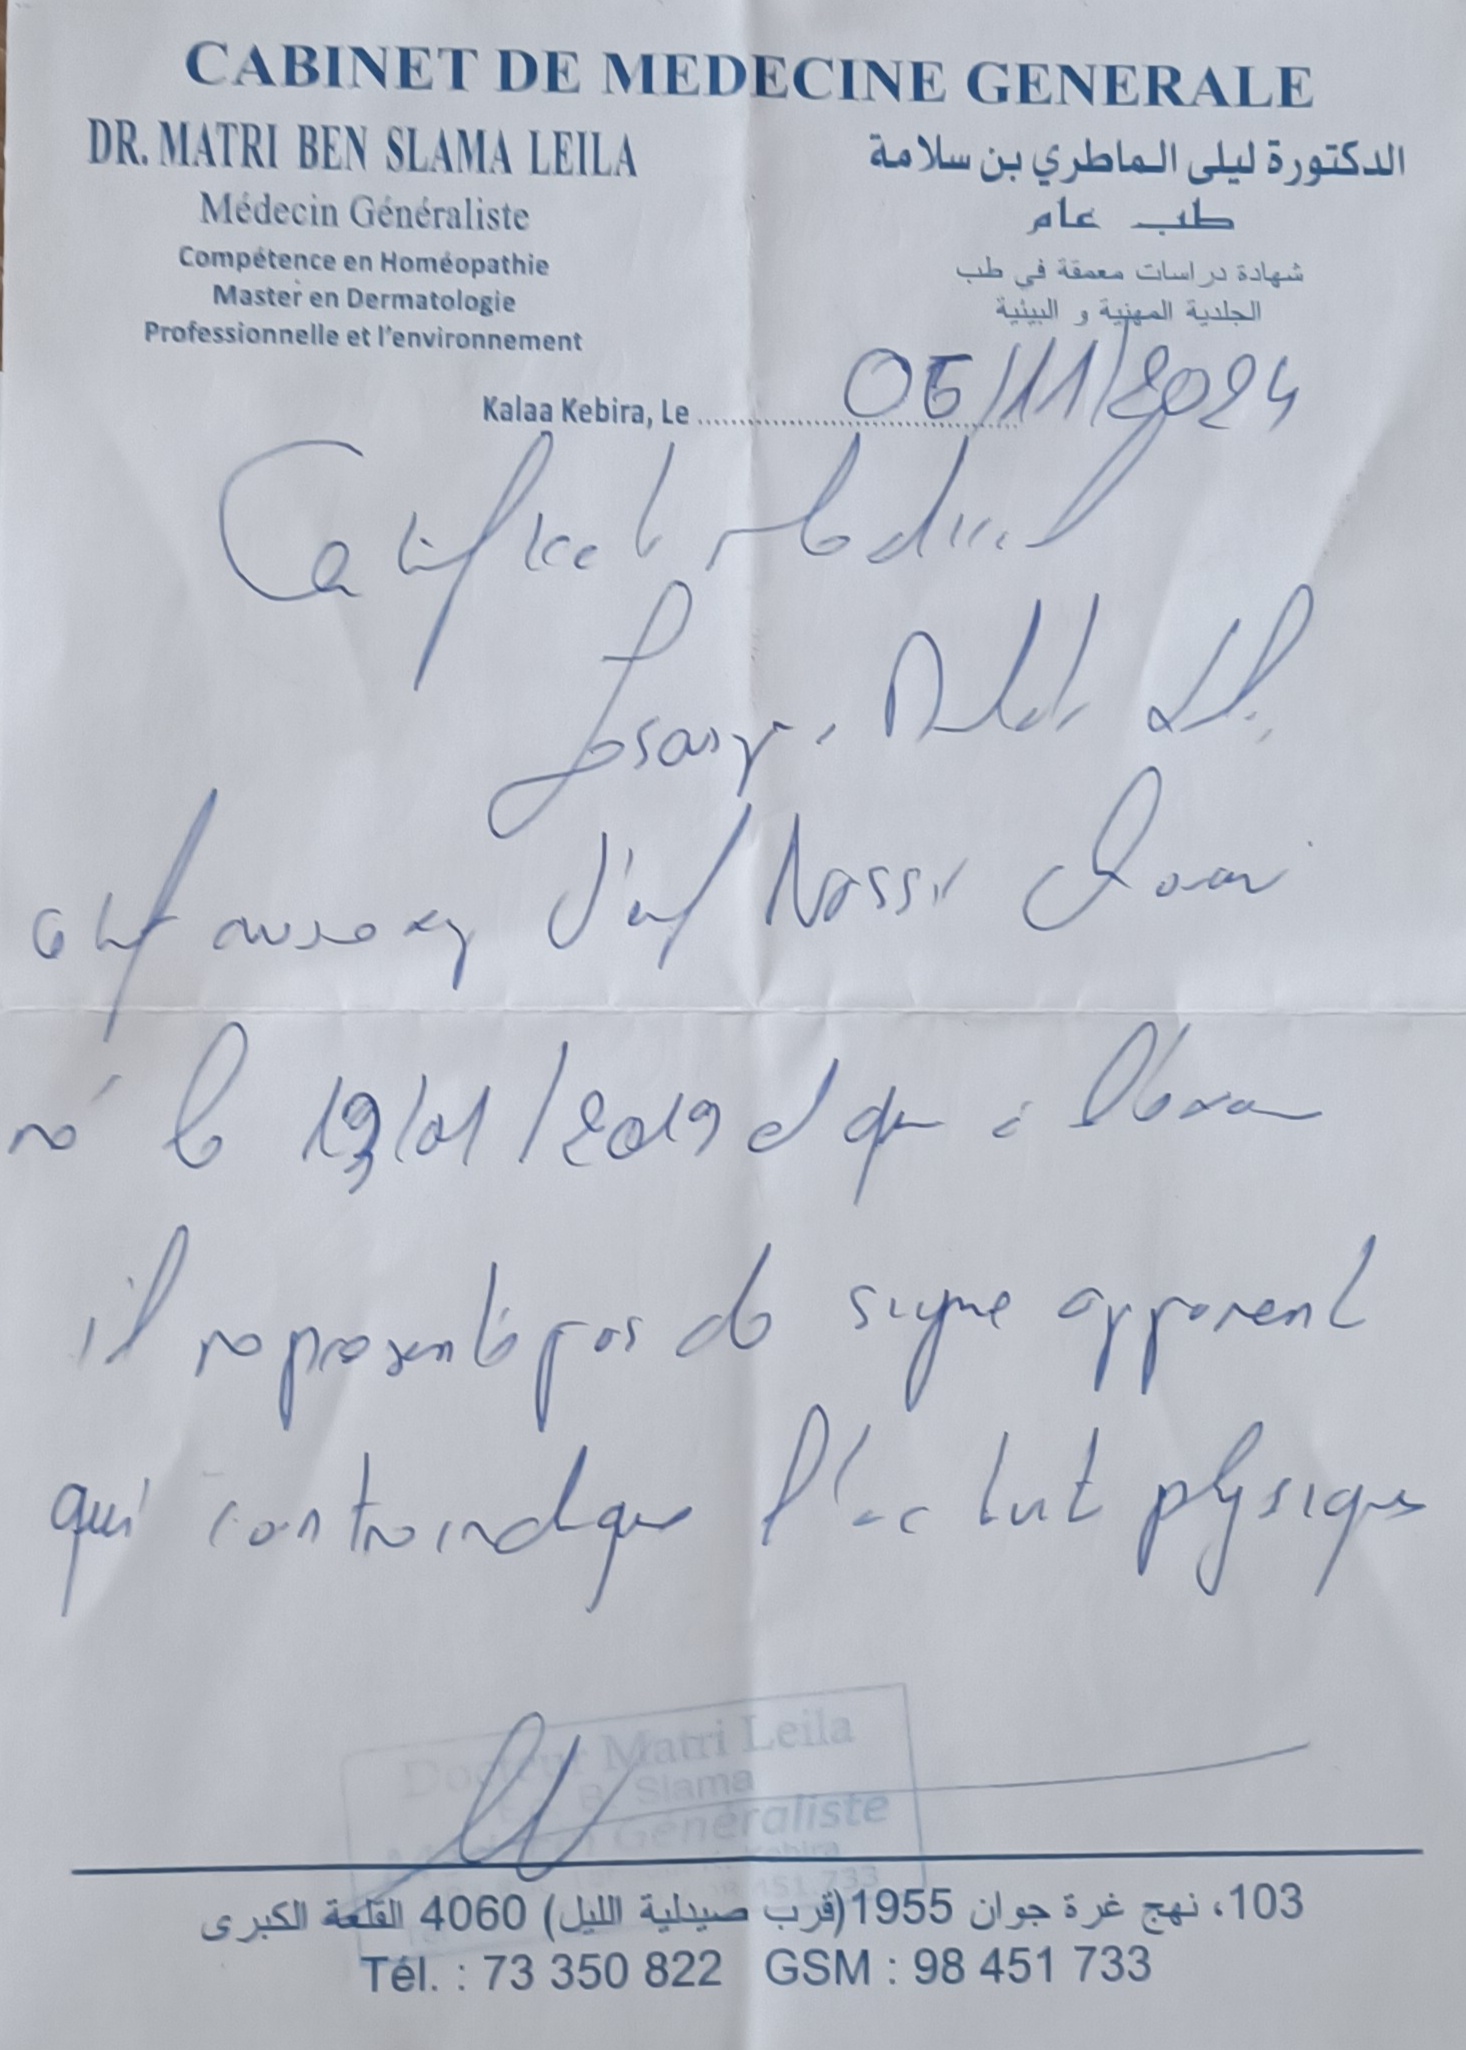 CABINET DE MEDECINE GENERALE
DR. MATRI BEN SLAMA LEILA
الدكتورة ليلى الماطري بن سلامة
Médecin Généraliste
طب عام
Compétence en Homéopathie
شهادة دراسات معمقة في طب
Master en Dermatologie
الجلدية المهنية و البيئية
Professionnelle et l'environnement
Kalaa Kebira, Le 05/11/2024
Certificat medical
Je soussigné
certif avoir exa l'enf Nassir
né le 19/01/2019 et que à l'exam
il ne presente pas de signe apparent
qui contraindique l'activité physique
Docteur Matri Leila
B. Slama
Médecin Généraliste
103، نهج غرة جوان 1955(قرب صيدلية الليل) 4060 القلعة الكبرى
Tél. : 73 350 822 GSM : 98 451 733